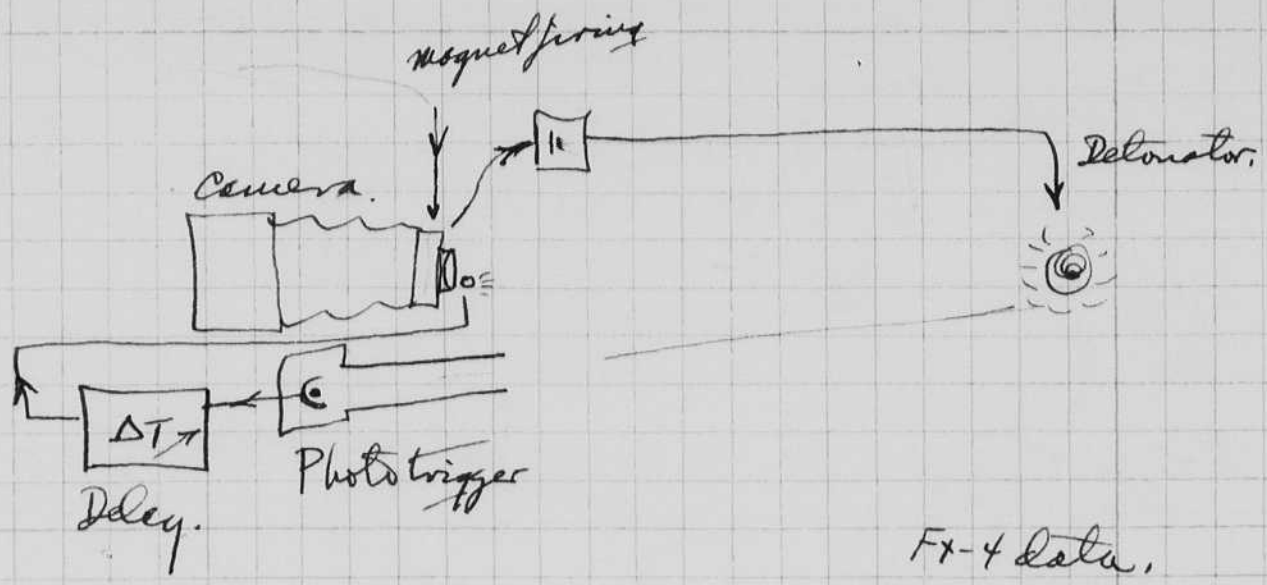 magnet firing
Camera.
Detonator.
ΔT
Delay.
Phototrigger
FX-4 data.